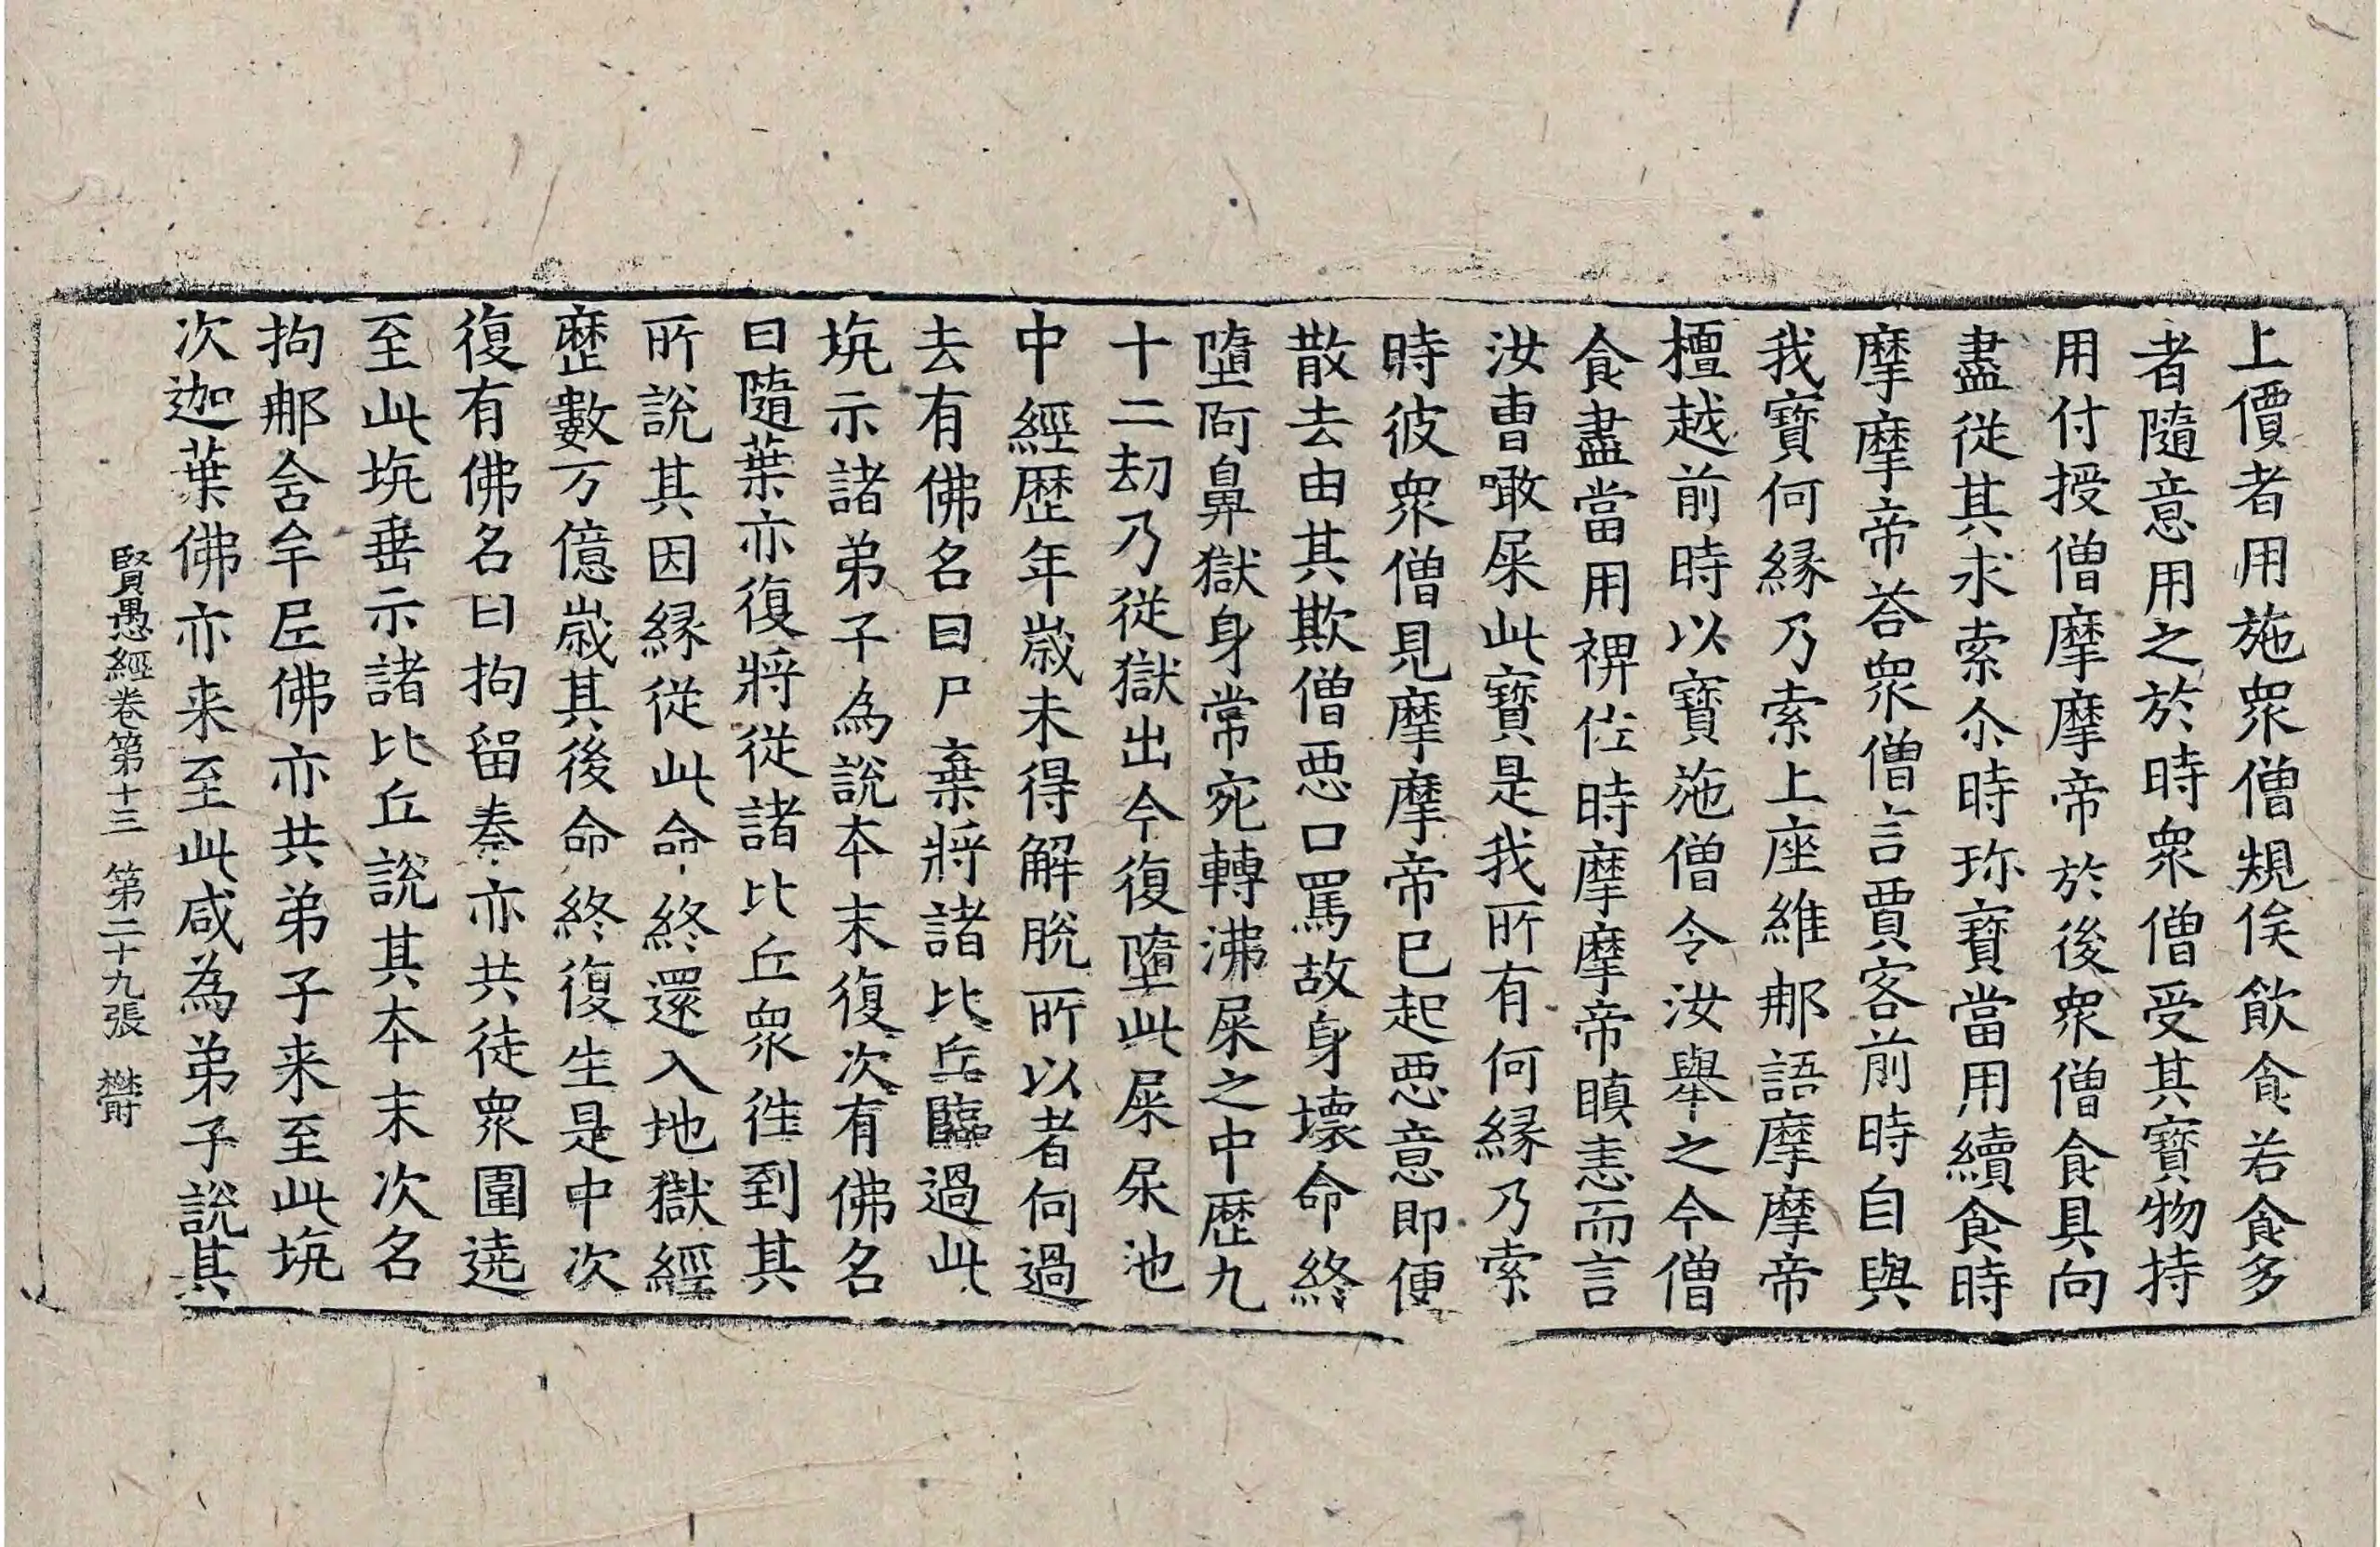 上價者用施衆僧規俟飲食若食多
者隨意用之於時衆僧受其寳物持
用付授僧摩摩帝於後衆僧食具向
盡從其求索尒時珎寳當用續食時
摩摩帝荅衆僧言賈客前時自與
我寳何縁乃索上座維那語摩摩帝
檀越前時以寳施僧令汝舉之今僧
食盡當用裨佐時摩摩帝瞋恚而言
汝曹噉屎此寳是我所有何縁乃索
時彼衆僧見摩摩帝已起惡意即便
散去由其欺僧惡口罵故身壞命終
墮阿鼻獄身常宛轉沸屎之中歷九
十二劫乃從獄出今復墮此屎尿池
中經歷年歲未得解脫所以者何過
去有佛名曰尸棄將諸比丘臨過此
坑示諸弟子為說本末復次有佛名
曰隨葉亦復將從諸比丘衆徃到其
所說其因縁從此命終還入地獄經
歷數万億歲其後命終復生是中次
復有佛名曰拘留秦亦共徒衆圍遶
至此坑垂示諸比丘說其本末次名
拘那含牟尼佛亦共弟子来至此坑
次迦葉佛亦来至此咸為弟子說其
賢愚經卷第十三 第二十九張 欎